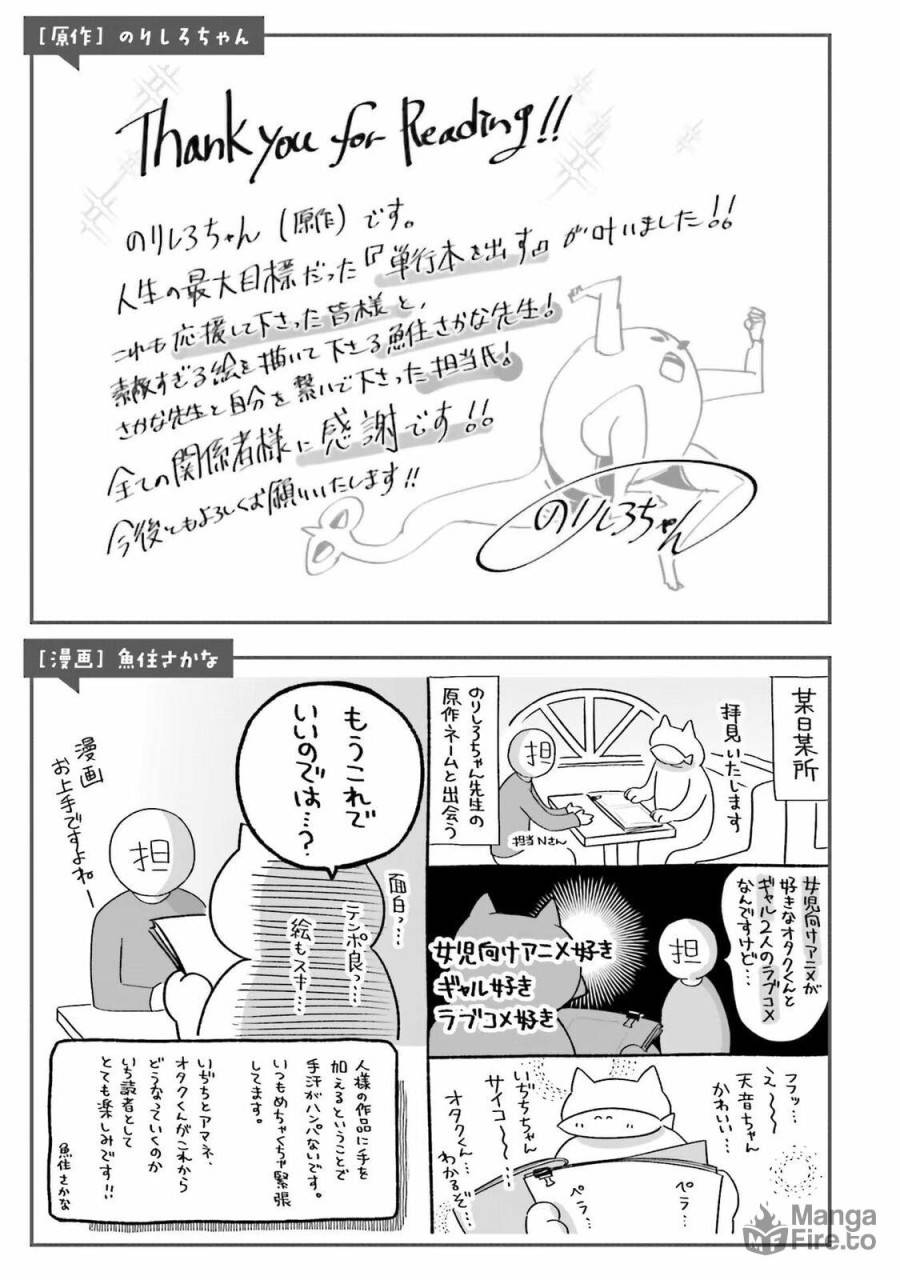 [原作] のりしろちゃん
Thank you for Reading!!
のりしろちゃん(原作)です。
人生の最大目標だった『単行本を出す』が叶いました!!
これも応援して下さった皆様と、
素敵すぎる絵を描いて下さる魚住さかな先生!
さかな先生と自分を繋いで下さった担当氏!
全ての関係者様に感謝です!!
今後ともよろしくお願いいたします!!
のりしろちゃん
[漫画] 魚住さかな
某日某所
拝見いたします
のりしろちゃん先生の
原作ネームと出会う
担
担当Nさん
女児向けアニメが
好きなオタクくんと
ギャル2人のラブコメ
なんですけど…
担
女児向けアニメ好き
ギャル好き
ラブコメ好き
フフッ…
え〜〜
天音ちゃん
かわいい…
いぢちちゃん
サイコ〜〜
オタクくん…
わかるぞ…
ペラ…
ペラ…
もうこれで
いいのでは…?
面白っ…
テンポ良っ…
絵もスキ…
漫画
お上手ですよねー
担
人様の作品に手を
加えるということで
手汗がハンパないです。
いつもめちゃくちゃ緊張
してます。
いぢちとアマネ、
オタクくんがこれから
どうなっていくのか
いち読者として
とても楽しみです!!
魚住さかな
MF
Manga
Fire.to